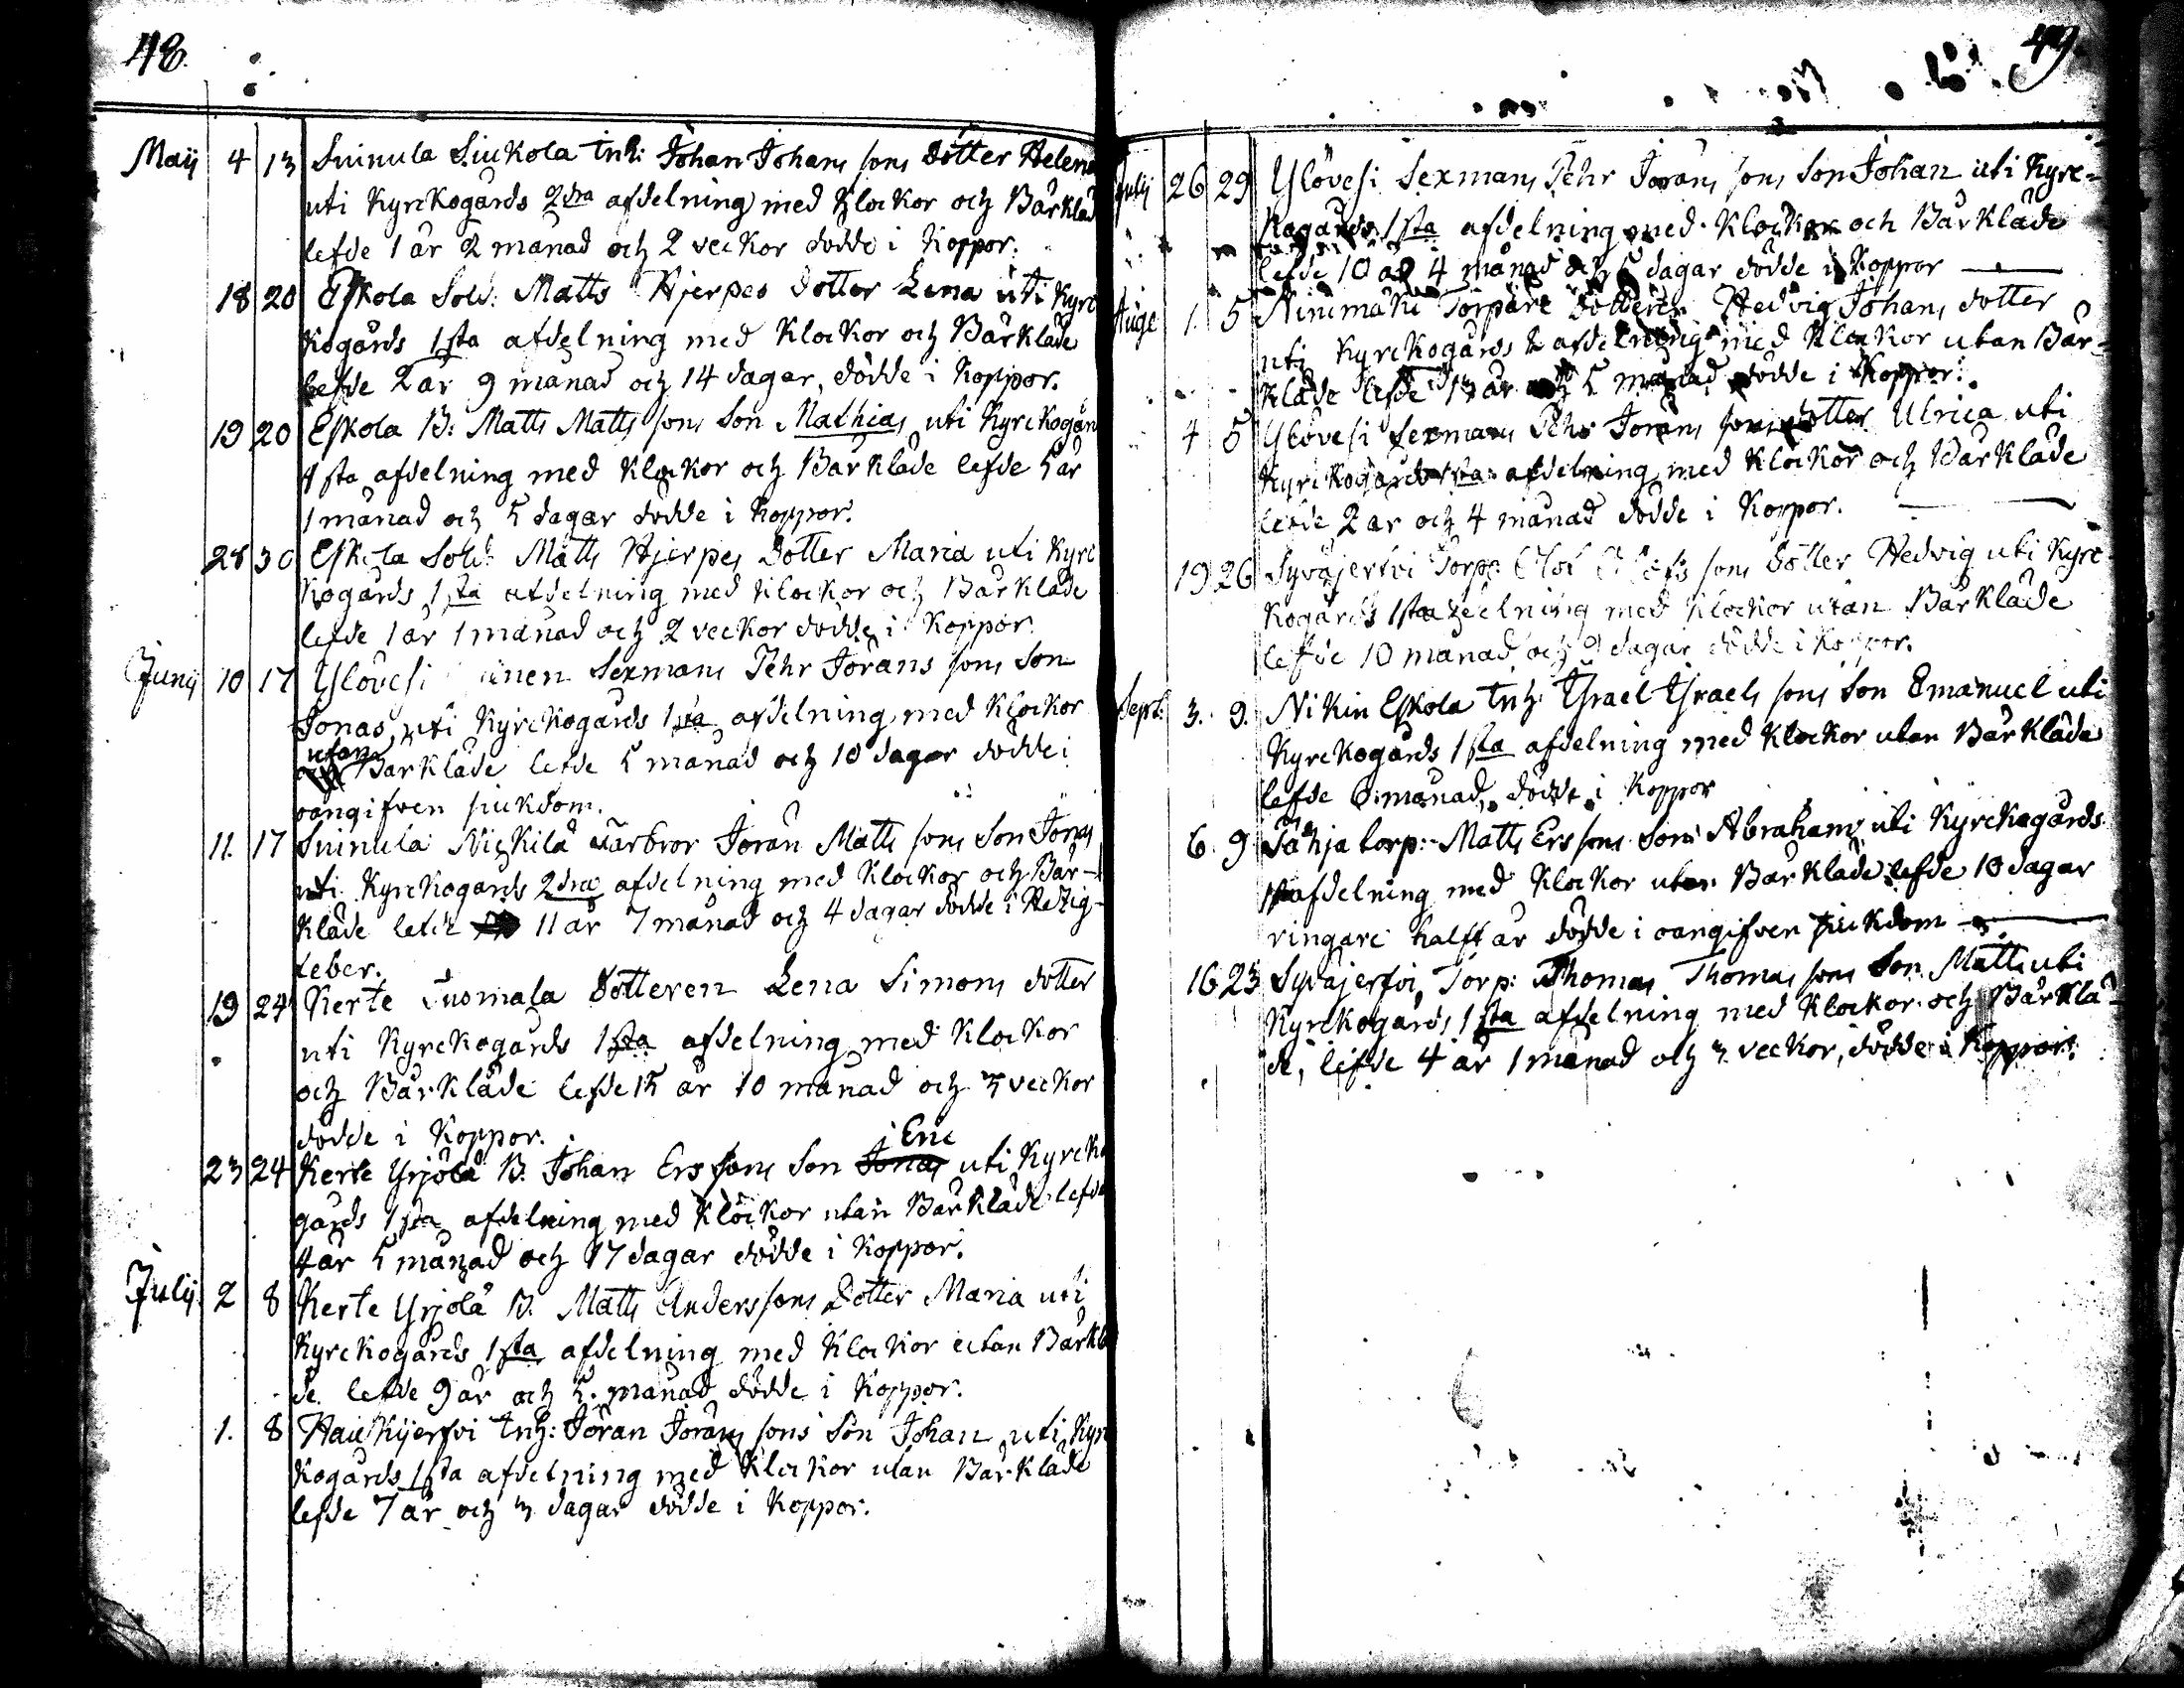 48.
Maij 4 13 Suinula Siukola Inh: Johan Johans sons dotter Helena
uti Kyrckogårds 2dra afdelning med Klockor och Bårkläd
lefde 1 år 2 månad och 2 veckor dödde i Koppor.
18 20 Eskola Sold: Matts Hjerpes dotter Lena uti Kyrc
kogårds 1sta afdelning med Klockor och Bårkläde
lefde 2 år 9 månad och 14 dagar, dödde i Koppor.
19 20 Eskola B: Matts Matts sons Son Mathias uti Kyrckogår
1sta afdelning med Klockor och Bårkläde lefde 5 år
1 månad och 5 dagar dödde i Koppor.
28 30 Eskola Sold: Matts Hjerpes Dotter Maria uti Kyrc
kogårds 1sta afdelning med Klockor och Bårkläde
lefde 1 år 1 månad och 2 veckor dödde i Koppor.
Junij 10 17 Ylövesi Sexmans Pehr Jörans sons Son
Jonas uti Kyrckogårds 1sta afdelning med Klockor
utan
och Bårkläde lefde 5 månad och 10 dagar dödde i
oangifven siukdom.
11. 17 Suinula Nickilä Jöran Matts sons Son Jonas
uti Kyrckogårds 2dra afdelning med Klockor och Bår-
kläde lefde 11 år 7 månad och 4 dagar dödde i Hetzig-
feber.
19 24 Kerte Tuomala Dotteren Lena Simons dotter
uti Kyrckogårds 1sta afdelning med Klockor
och Bårkläde lefde 15 år 10 månad och 3 veckor
dödde i Koppor.
Eric
23 24 Kerte Yrjölä B. Johan Ers sons Son Jonas uti Kyrcko
gårds 1sta afdelning med Klockor utan Bårkläde lefde
4 år 5 månad och 17 dagar dödde i Koppor.
Julij 2 8 Kerte Yrjölä B. Matts Anders sons Dotter Maria uti
Kyrckogårds 1sta afdelning med Klockor utan Bårklä
de lefde 9 år och 5 månad dödde i Koppor.
1. 8 Haukijerfvi Inh: Jöran Jörans sons Son Johan uti Kyrc
kogårds 1sta afdelning med Klockor utan Bårkläde
lefde 7 år och 3 dagar dödde i Koppor.
49.
Julij 26 29 Ylövesi Sexmans Pehr Jörans sons Son Johan uti Kyrc-
kogårds 1sta afdelning med Klockor och Bårkläde
lefde 10 år 4 månad och dagar dödde i Koppor
Aug: 1. 5 Ninimäki Torpare Dotteren Hedvig Johans dotter
uti Kyrckogårds afdelning med Klockor utan Bår-
kläde lefde 13 år och 5 månad dödde i Koppor.
4 5 Ylövesi Sexmans Pehr Jörans sons dotter Ulrica uti
Kyrckogårds 1sta afdelning med Klockor och Bårkläde
lefde 2 år och 4 månad dödde i Koppor.
19 26 Syväjerfvi Torp: sons Dotter Hedvig uti Kyrc
kogårds 1sta delning med Klockor utan Bårkläde
lefde 10 månad och 9 dagar dödde i Koppor.
Sept: 3. 9. Nikin Eskola Inh: Israel Israels sons Son Emanuel uti
Kyrckogårds 1sta afdelning med Klockor utan Bårkläde
lefde månad, dödde i Koppor
6. 9 torp: Matts Ers sons Son Abraham uti Kyrckogårds
1sta afdelning med Klockor utan Bårkläde lefde 10 dagar
ringare halft år dödde i oangifven siukdom
16 23 Syväjerfvi Torp: Thomas Thomas sons Son Matts uti
Kyrckogårds 1sta afdelning med Klockor och Bårklä-
de, lefde 4 år 1 månad och 3 veckor, dödde i Koppor.